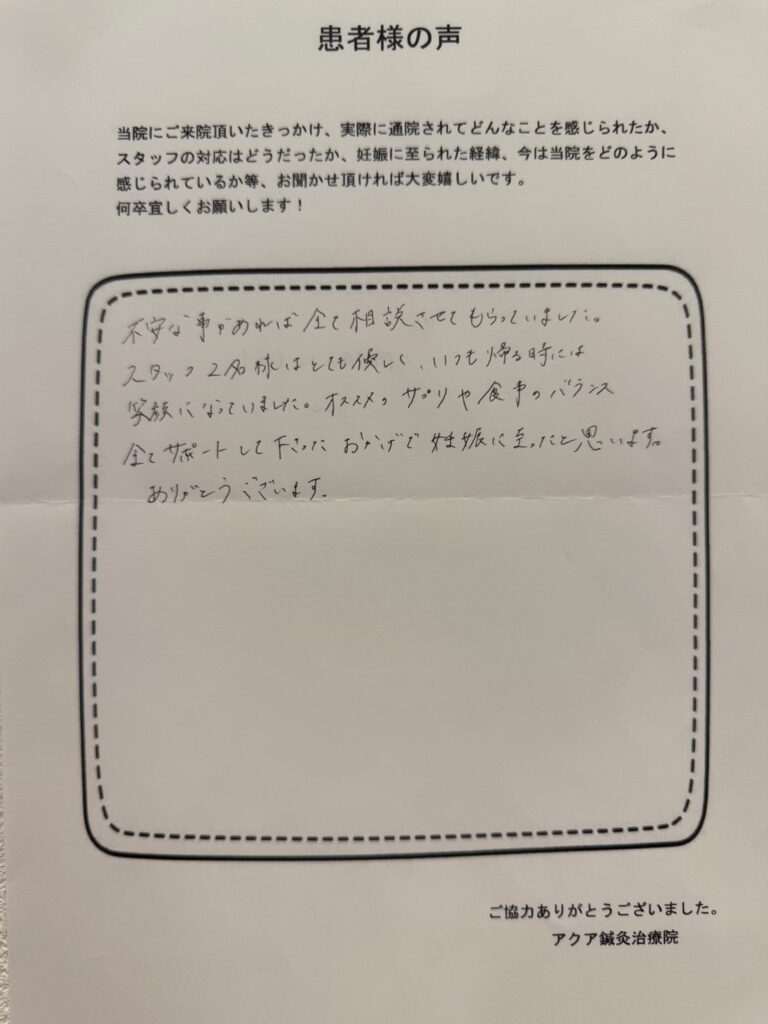 患者様の声
当院にご来院頂いたきっかけ、実際に通院されてどんなことを感じられたか、
スタッフの対応はどうだったか、妊娠に至られた経緯、今は当院をどのように
感じられているか等、お聞かせ頂ければ大変嬉しいです。
何卒宜しくお願いします！
不安な事があれば全て相談させてもらっていました。
スタッフ2名様はとても優しく、いつも帰る時には
笑顔になっていました。オススメのサプリや食事のバランス
全てサポートして下さったおかげで妊娠に至ったと思います。
ありがとうございます。
ご協力ありがとうございました。
アクア鍼灸治療院